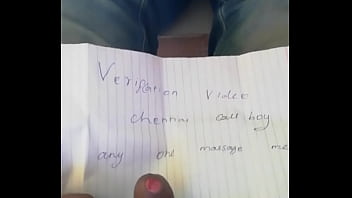 Verification Video
chennai call boy
any one massage me